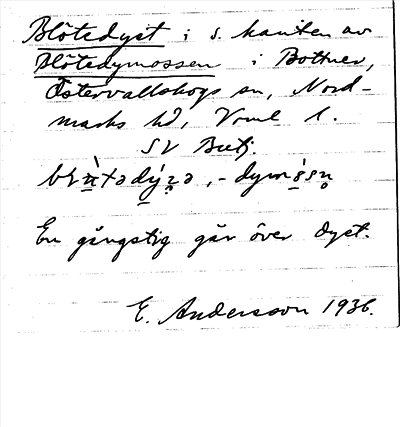 Blötedyet i s. kanten av
Blötedymossen i Bottnev,
Östervallskogs sn, Nord-
marks hd, Vrml l.
SV Butj.
En gångstig går över dyet.
E. Andersson 1936.